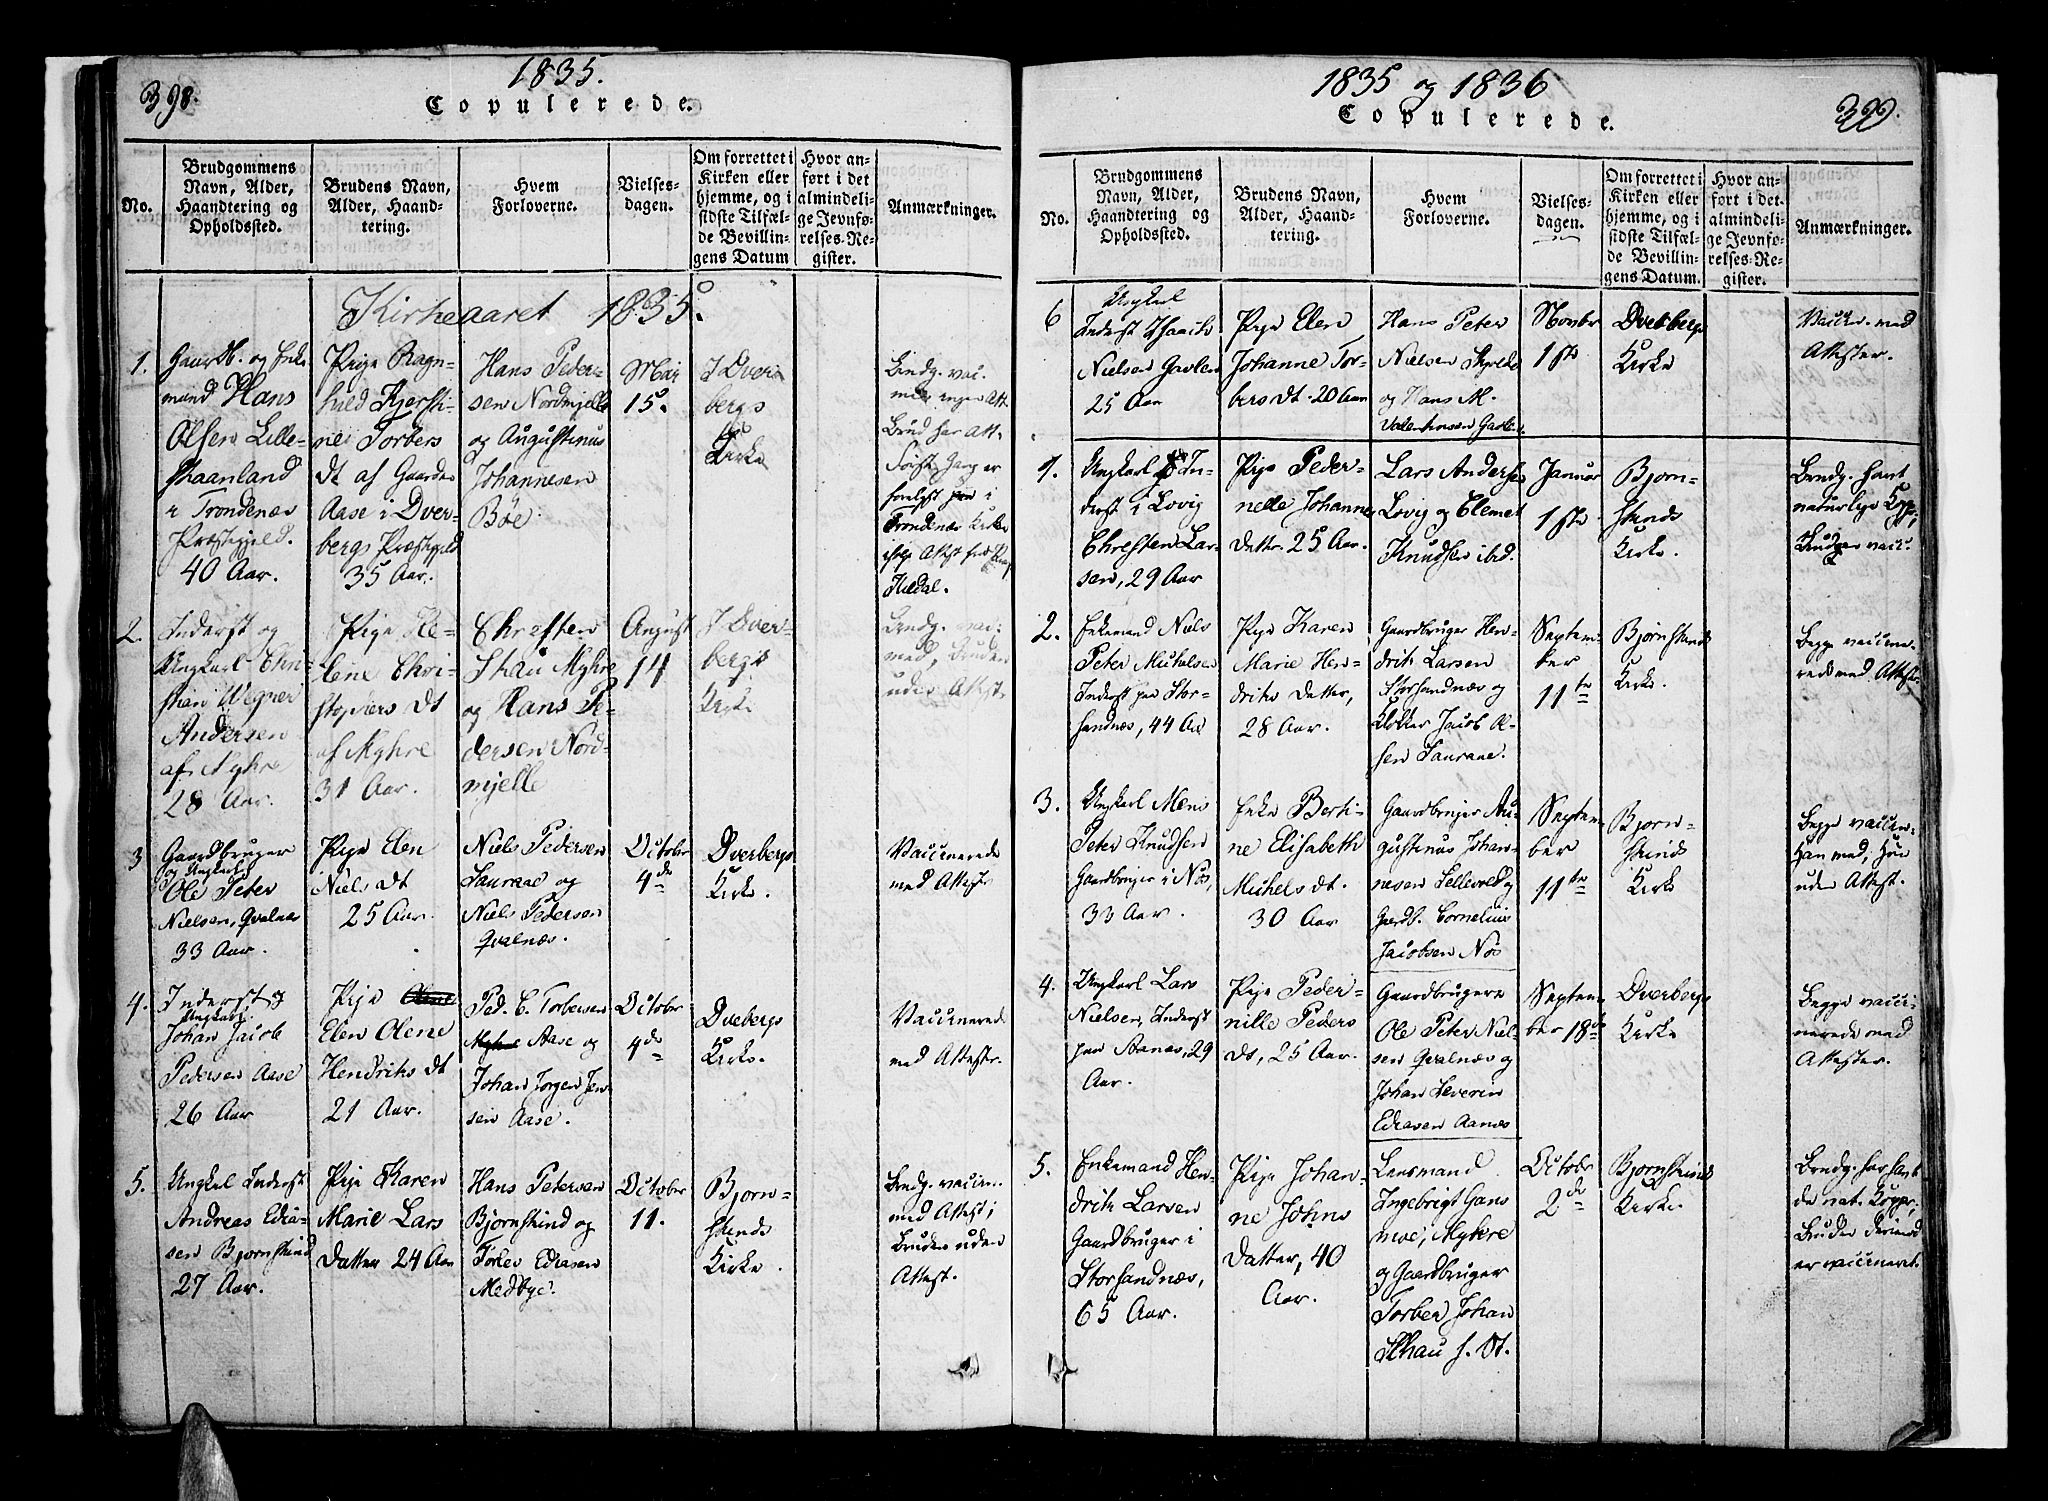 398.
1835.
Copulerede.
No.
Brudgommens
Navn, Alder,
Haandtering og
Opholdssted.
Brudens Navn,
Alder, Haand-
tering.
Hvem
Forloverne.
Vielses-
dagen.
Om forrettet i
Kirken eller
hjemme, og i
sidste Tilfæl-
de Bevillin-
gens Datum
Hvor an-
ført i det
almindeli-
ge Jevnfø-
relses-Re-
gister.
Anmærkninger.
Kirkeaaret 1835.
1.
Gaardb. og Enke
mand Hans
Olsen Lille-
haanland
i Trondenæs
Præstegjeld.
40 Aar.
Pige Ragn-
hild Kjersti-
ne Torbers
Dt af Gaarden
Aase i Dver-
bergs Præstegjeld
35 Aar.
Hans Peder-
sen Nordmjelle
og Augustinus
Johannesen
Bøe.
Mai
15.
I Dver
bergs
Kirke
Brudg. vac.
men ingen Att.
Brud har Att.
Første Gang er
forelyst i
Trondenæs Kirke
ifølge Attest fra
2.
Inderst og
Ungkarl Chri-
stian Wegner
Andersen
af Myhre
28 Aar.
Pige He-
lene Chri-
stophers Dt
af Myhre
31 Aar.
Chresten
Schau Myhre
og Hans Pe-
dersen Nord-
mjelle
August
14
I Dver-
bergs
Kirke
Brudg. vac:
med, Bruden
uden Attest.
3
Gaardbruger
og Ungkarl
Ole Peter
Nielsen, Qvalnæs
33 Aar.
Pige Elen
Niels Dt
25 Aar.
Niels Pedersen
Saurane og
Niels Pedersen
Qvalnæs.
October
4de
Dverbergs
Kirke.
Vaccinerede
med Attester
4.
Inderst og
Ungkarl
Johan Jacob
Pedersen Aase
26 Aar
Pige
Elen Olene
Hendriks Dt
21 Aar.
Ped. C. Torbersen
Myhre Aase og
Johan Jørgen Jen-
sen Aase.
October
4de
Dvebergs
Kirke.
Vaccinerede
med Attestr.
5.
Ungkal Inderst
Andreas Edia-
sen Bjørnskind
27 Aar.
Pige Karen
Marie Lars
Datter 24 Aar
Hans Petersen
Bjørnskind og
Tolev Ediasen
Medbye.
October
11.
Bjørn-
skinds
Kirke.
Brudg. vaccin.
med Attest;
Bruden uden
Attest.
1835 og 1836
Copulerede.
399.
No.
Brudgommens
Navn, Alder,
Haandtering og
Opholdssted.
Brudens Navn,
Alder, Haand-
tering.
Hvem
Forloverne.
Vielses-
dagen.
Om forrettet i
Kirken eller
hjemme, og i
sidste Tilfæl-
de Bevillin-
gens Datum.
Hvor an-
ført i det
almindeli-
ge Jevnfø-
relses-Re-
gister.
Anmærkninger.
6
Ungkal
Inderst Isaach
Nielsen Gavlen
25 Aar
Pige Elen
Johanne Tor-
bers Dt. 20 Aar
Hans Peter
Nielsen
og Hans M.
Valentinsen Gavlen.
Novber
1ste
Dverbergs
Kirke
Vaccin. med
Attester.
1.
Ungkarl In-
derst i Lovig
Chresten Lar-
sen, 29 Aar
Pige Peder-
nelle Johannes
Datter. 25 Aar.
Lars Andersen
Lovig og Clemet
Knudsen ibid.
Januar
1ste
Bjørn-
skinds
Kirke.
Brudg. havt
naturlige Kopper,
Bruden vacc.
2.
Enkemand Niels
Peter Michelsen
Inderst paa Stor-
sandnæs, 44 Aar
Pige Karen
Marie Hen-
driks Datter,
28 Aar.
Gaardbruger Hen-
drik Larsen
Storsandnæs og
Klokker Jacob Ol-
sen Saurane.
Septem-
ber
11te
Bjørnskinds
Kirke.
Begge vaccine-
rede med Attester.
3.
Ungkarl Mons
Peter Knudsen
Gaardbruger i Nøs,
33 Aar.
Enke Berti-
ne Elisabeth
Michels dt.
30 Aar
Gaardbruger Au-
gustinus Johan-
nesen Sellevold og
Gardb. Cornelius
Jacobsen Nøs
Septem-
ber
11te
Bjørn-
skinds
Kirke
Begge vaccin-
Han med, Hun
uden Attest.
4.
Ungkarl Lars
Nielsen, Inderst
paa Aanæs, 29
Aar.
Pige Peder-
nille Peders
dt, 25 Aar.
Gaardbrugere
Ole Peter Niel-
sen Qvalnæs og
Johan Severin
Ediasen Aanæs
Septem-
ber 18de
Dverbergs
Kirke
Begge vacci-
nerede med
Attester.
5.
Enkemand Hen-
drik Larsen
Gaardbruger i
Storsandnæs,
65 Aar.
Pige Johan-
ne Johns
Datter, 40
Aar.
Lensmand
Ingebrigt Gans
moe, Myhre
og Gaardbruger
Torber Johan
Schau s. St.
October
2de
Bjørnskinds
Kirke.
Brudg. har havt
de nat. Kopper,
Bruden derimod
er vaccineret.